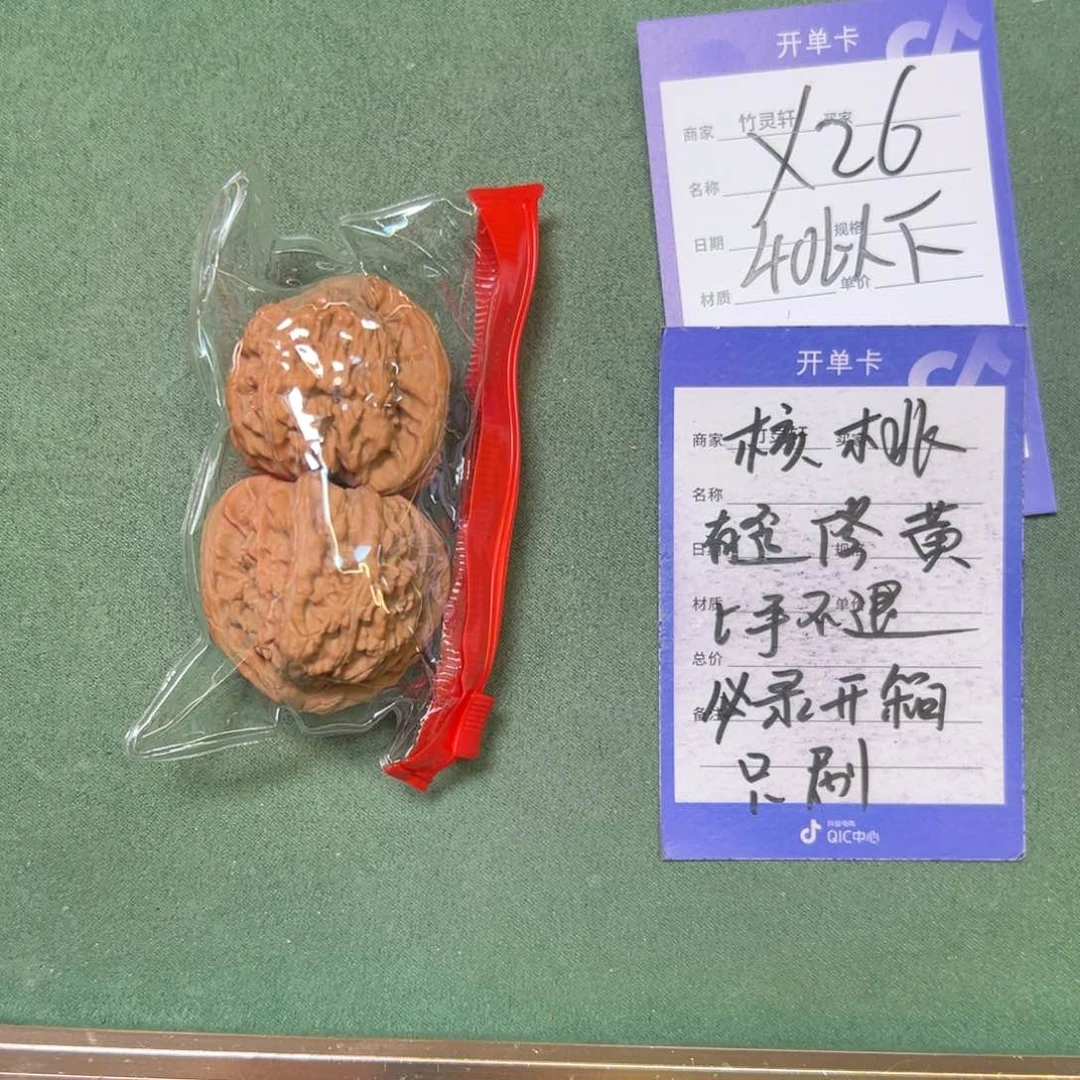 开单卡
商家 竹灵轩 买家
X26
名称
日期 规格
40以下
材质 单价
开单卡
商家 竹灵轩 买家
核桃
名称
规格
黄
材质 单价
上手不退
总价
必录开箱
只刷
抖音电商
QIC中心